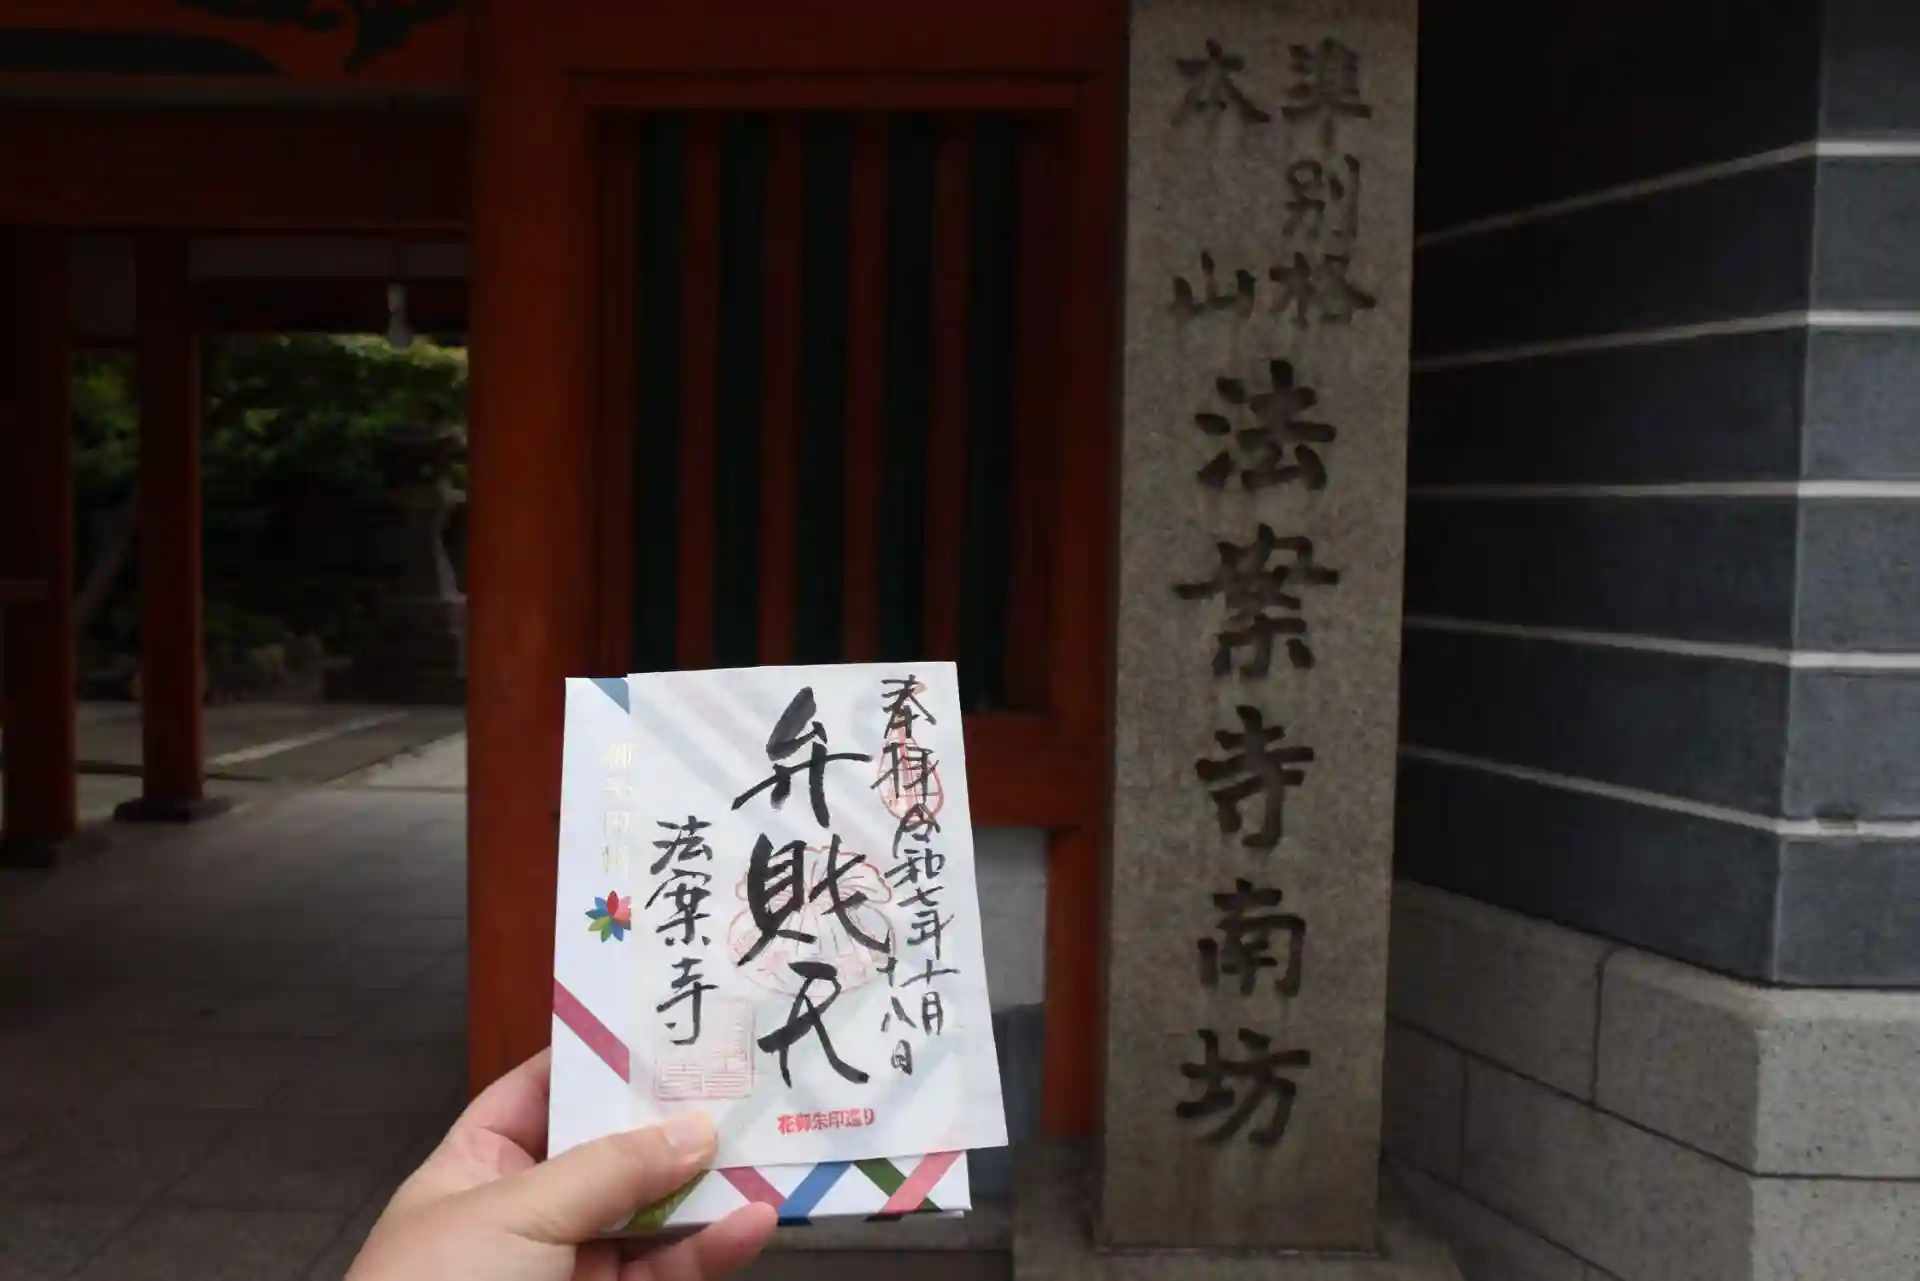 準別格
本山
法案寺南坊
奉拝
令和七年十月
十八日
弁財天
法案寺
花御朱印巡り
御朱印帳